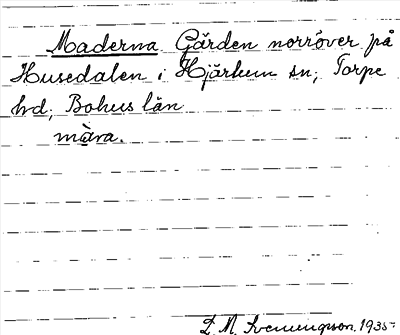 Maderna Gården norröver på
Husedalen i Hjärtum sn, Torpe
hd, Bohus län
màra.
D. M. Svenningsson 1935